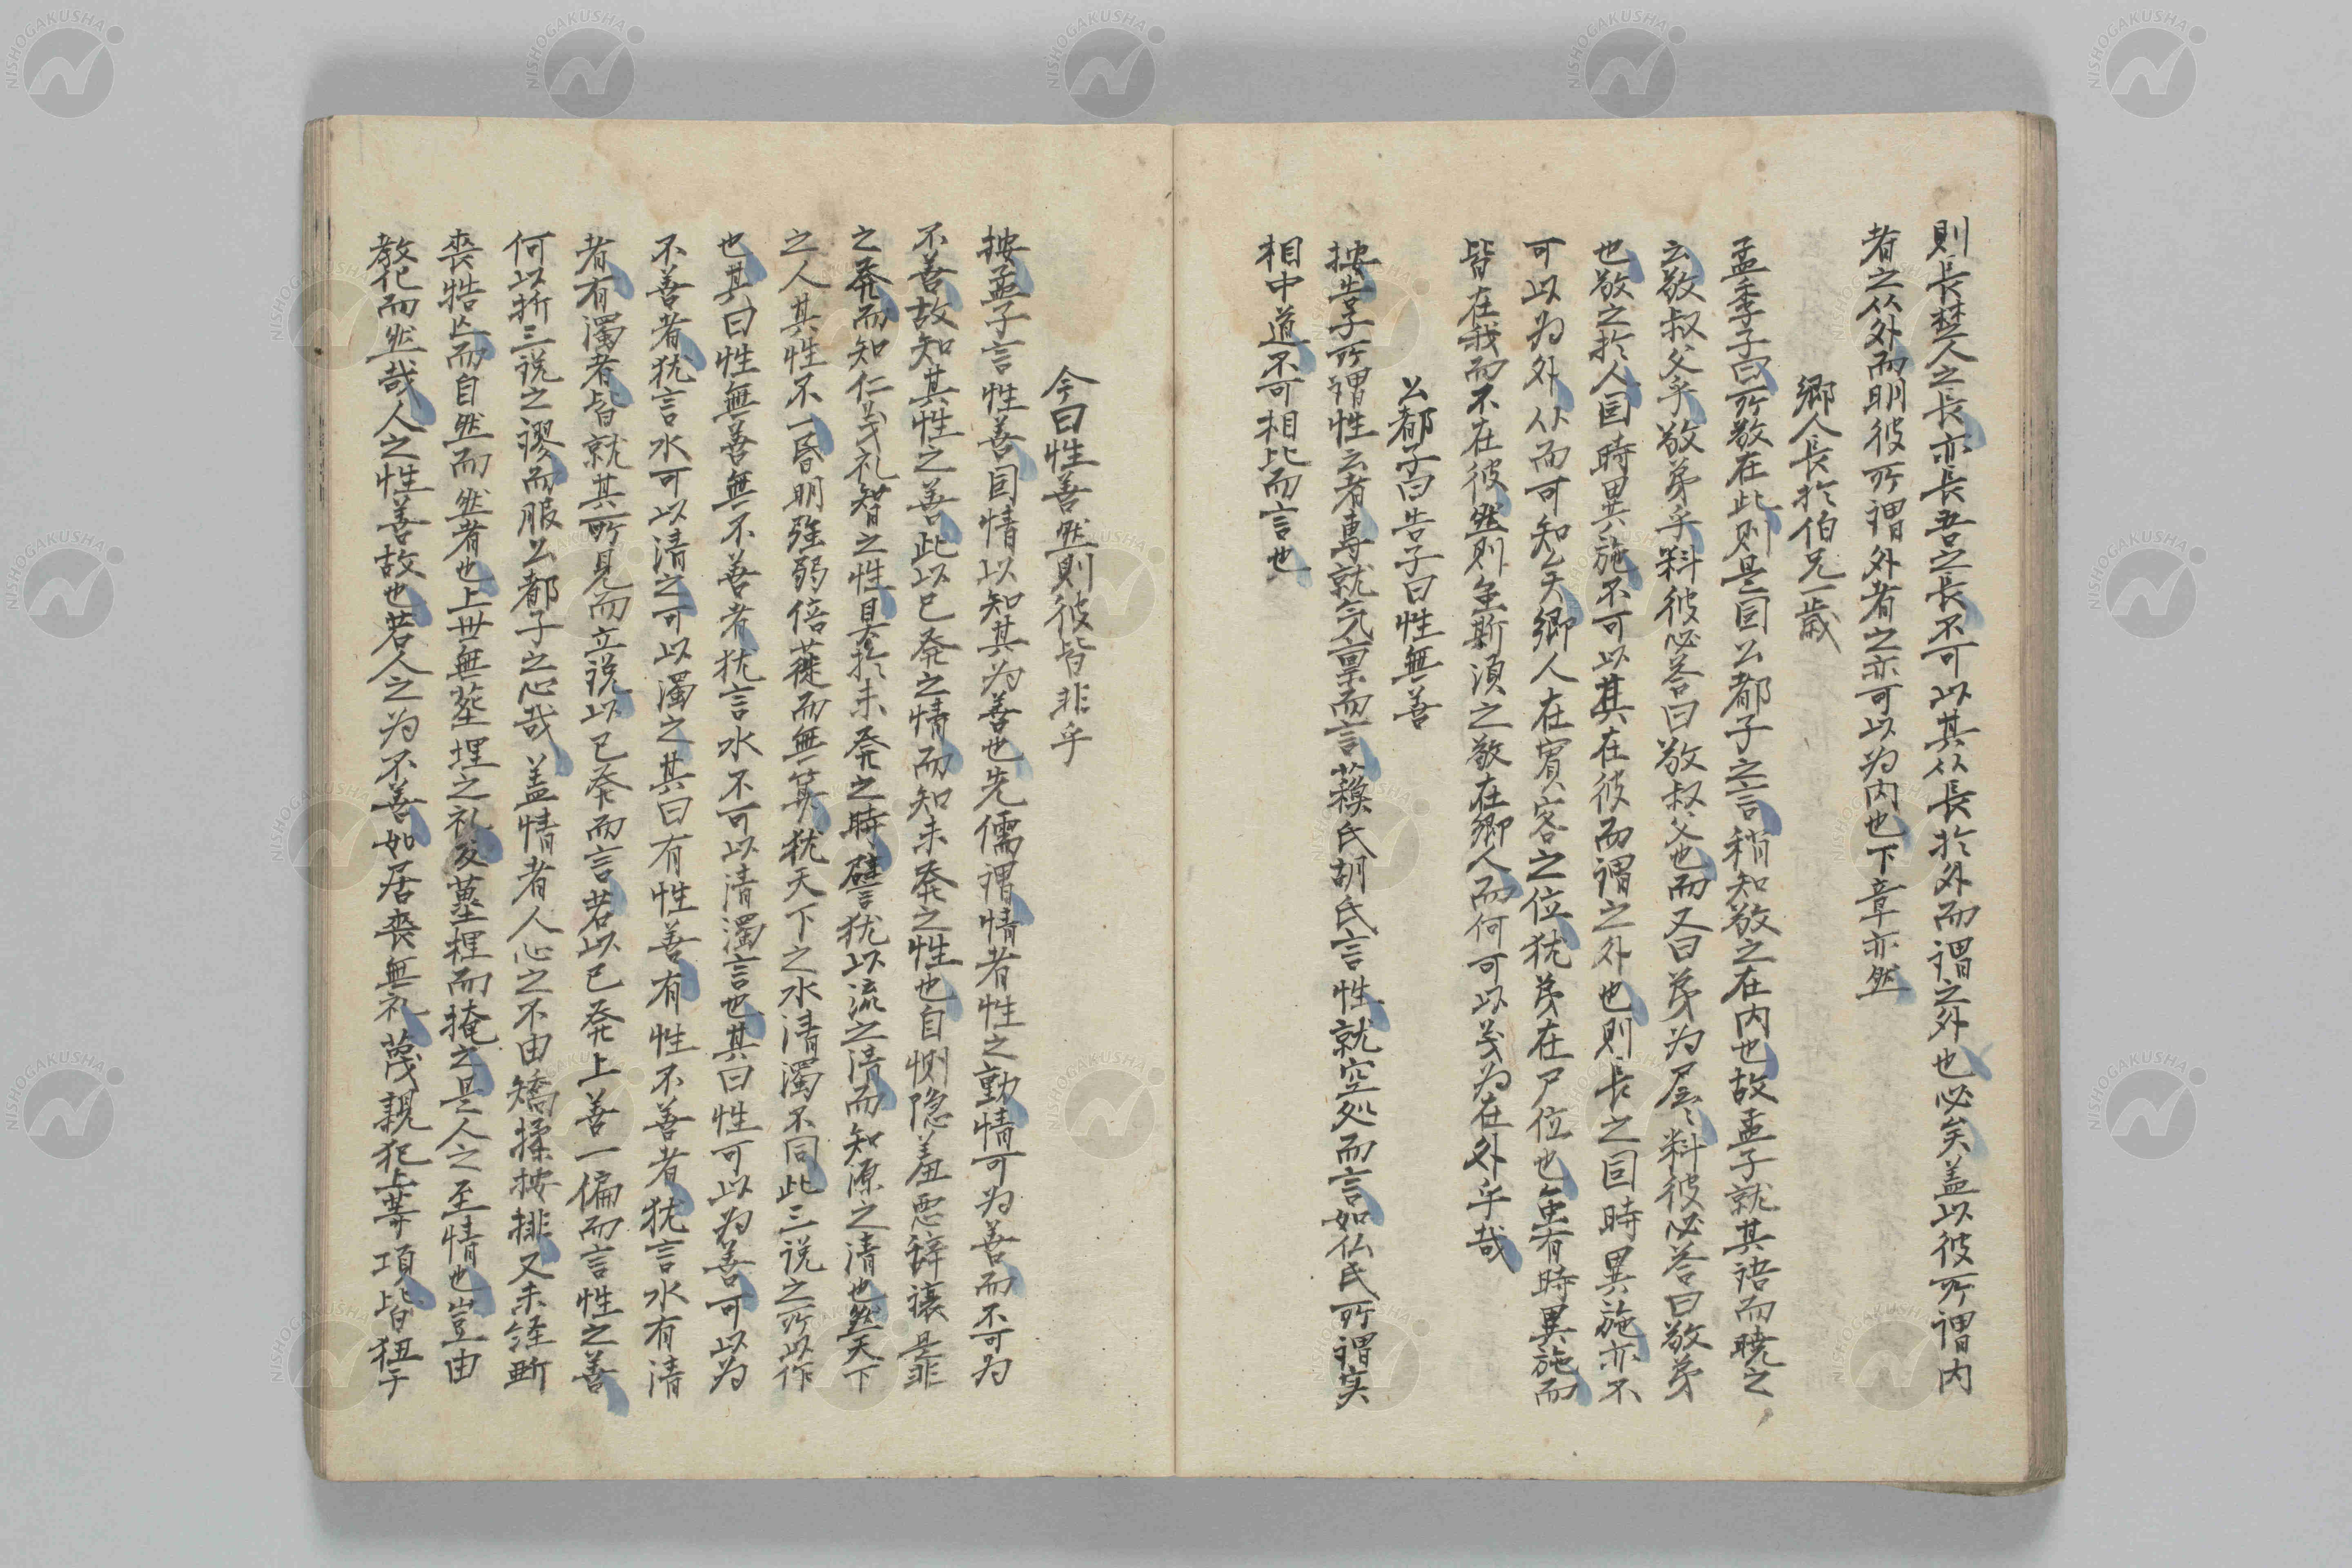 則長楚人之長亦長吾之長不可以其从長於外而謂之外也必矣盖以彼所謂内
者之从外而明彼所謂外者之亦可以为内也下章亦然
鄉人長於伯兄一歳
孟季子曰所敬在此則是因公都子之言稍知敬之在内也故孟子就其語而曉之
云敬叔父乎敬弟乎料彼必答曰敬叔父也而又曰弟为尸云々料彼必答曰敬弟
也敬之於人因時異施不可以其在彼而謂之外也則長之因時異施亦不
可以为外从而可知矣鄉人在賓客之位犹弟在尸位也虽有時異施而
皆在我而不在彼然則虽斯須之敬在鄉人而何可以义为在外乎哉
公都子曰告子曰性無善
按告子所謂性云者専就気禀而言蘓氏胡氏言性就空処而言如仏氏所謂实
相中道不可相比而言也
今曰性善然則彼皆非乎
按孟子言性善因情以知其为善也先儒謂情者性之動情可为善而不可为
不善故知其性之善此以已発之情而知未発之性也自惻隐羞悪辞讓是非
之発而知仁义礼智之性具於未発之時譬犹以流之清而知源之清也然天下
之人其性不一昏明強弱倍蓰而無算犹天下之水清濁不同此三说之所以作
也其曰性無善無不善者犹言水不可以清濁言也其曰性可以为善可以为
不善者犹言水可以清之可以濁之其曰有性善有性不善者犹言水有清
者有濁者皆就其所見而立说以已発而言若以已発上善一偏而言性之善
何以折三说之謬而服公都子之心哉盖情者人心之不由矯揉按排又未経断
喪牿亡而自然而然者也上世無塟埋之礼及蔂梩而掩之是人之至情也豈由
教化而然哉人之性善故也若人之为不善如居喪無礼蔑親犯上等項皆狃于
NISHOGAKUSHA